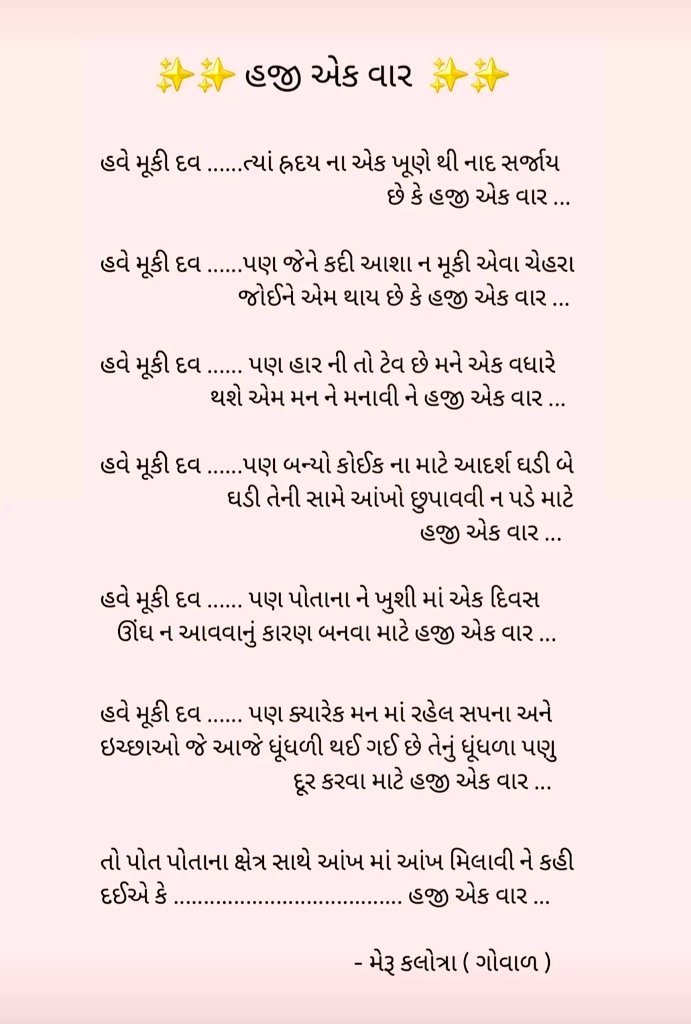 ✨✨ હજી એક વાર ✨✨
હવે મૂકી દવ ......ત્યાં હ્રદય ના એક ખૂણે થી નાદ સર્જાય
છે કે હજી એક વાર ...
હવે મૂકી દવ ......પણ જેને કદી આશા ન મૂકી એવા ચેહરા
જોઈને એમ થાય છે કે હજી એક વાર ...
હવે મૂકી દવ ...... પણ હાર ની તો ટેવ છે મને એક વધારે
થશે એમ મન ને મનાવી ને હજી એક વાર ...
હવે મૂકી દવ ......પણ બન્યો કોઈક ના માટે આદર્શ ઘડી બે
ઘડી તેની સામે આંખો છુપાવવી ન પડે માટે
હજી એક વાર ...
હવે મૂકી દવ ...... પણ પોતાના ને ખુશી માં એક દિવસ
ઊંઘ ન આવવાનું કારણ બનવા માટે હજી એક વાર ...
હવે મૂકી દવ ...... પણ ક્યારેક મન માં રહેલ સપના અને
ઇચ્છાઓ જે આજે ધૂંધળી થઈ ગઈ છે તેનું ધૂંધળા પણુ
દૂર કરવા માટે હજી એક વાર ...
તો પોત પોતાના ક્ષેત્ર સાથે આંખ માં આંખ મિલાવી ને કહી
દઈએ કે ...................................... હજી એક વાર ...
- મેરૂ કલોત્રા ( ગોવાળ )